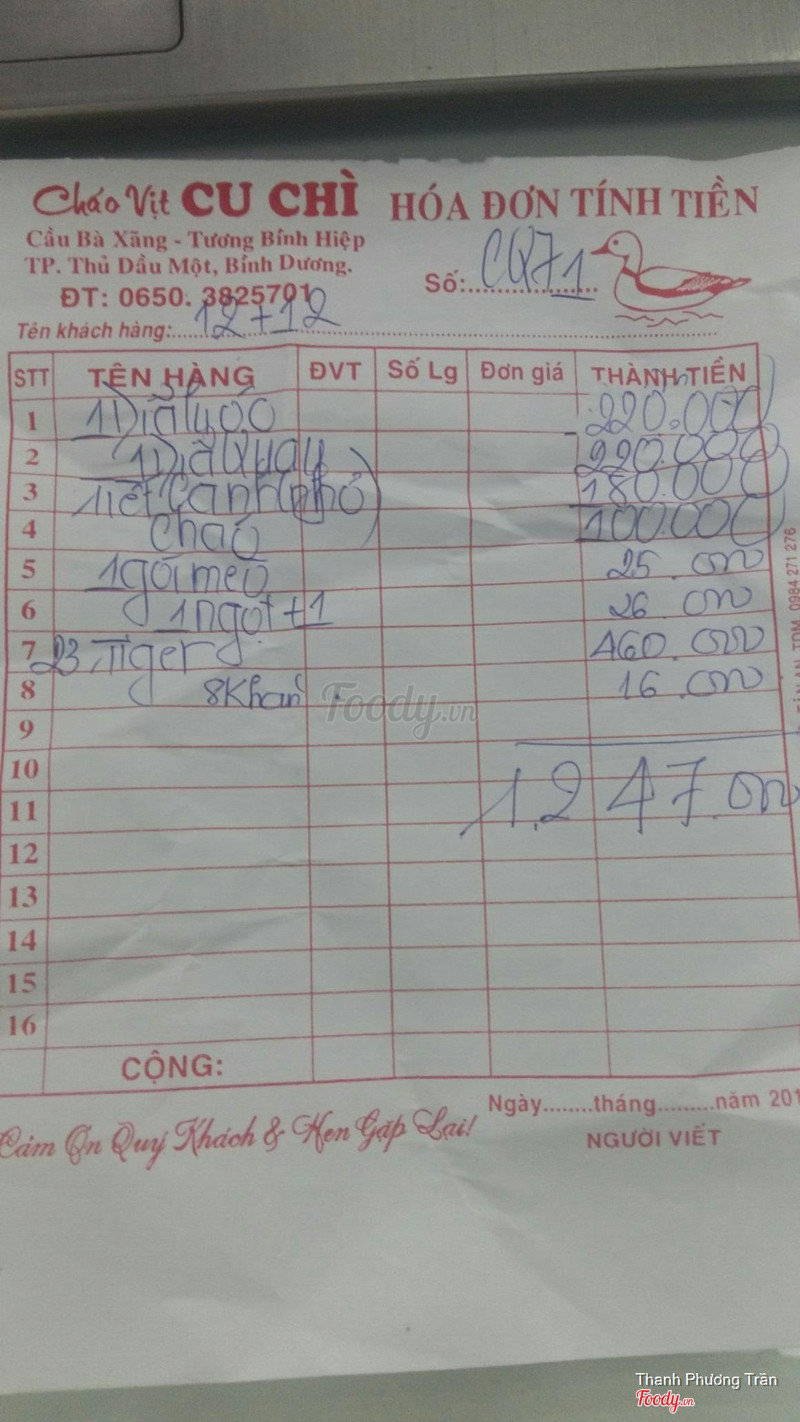 Cháo Vịt CU CHÌ
HÓA ĐƠN TÍNH TIỀN
Cầu Bà Xãng - Tương Bính Hiệp
TP. Thủ Dầu Một, Bình Dương.
Số:.....CQ71
ĐT: 0650. 3825701
Tên khách hàng:.....12+12
STT TÊN HÀNG ĐVT Số Lg Đơn giá THÀNH TIỀN
1 1 Dĩa luộc 220.000
2 1 Dĩa quay 220.000
3 Tiết canh (nhỏ) 180.000
4 Cháo 100.000
5 1 gói mèo 25.000
6 1 ngọt + 1 26.000
7 23 Tiger 460.000
8 8 Khăn 16.000
Foody.vn
9
10
1.247.000
11
12
13
14
15
16
CỘNG:
Ngày........tháng.........năm 201
Cảm Ơn Quý Khách & Hẹn Gặp Lại!
NGƯỜI VIẾT
TDM. 0984 271 276
Thanh Phương Trần
Foody.vn